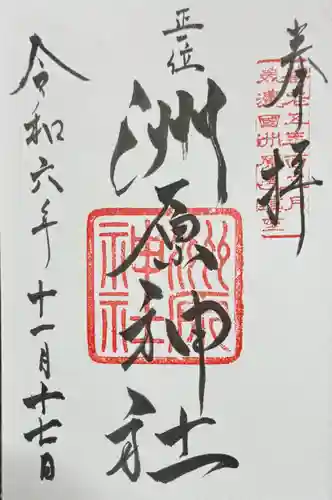 奉拝
正一位
洲原神社
令和六年十一月十七日
洲原神社